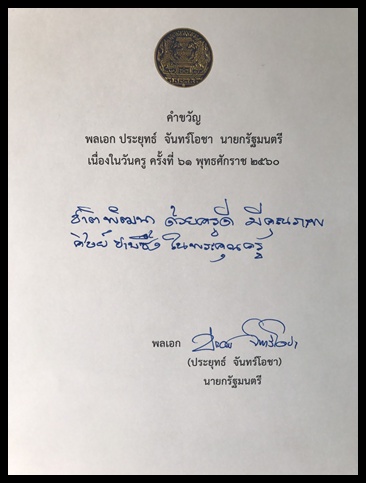 คำขวัญ
พลเอก ประยุทธ์ จันทร์โอชา นายกรัฐมนตรี
เนื่องในวันครู ครั้งที่ ๖๑ พุทธศักราช ๒๕๖๐
ชาติพัฒนา ด้วยครูดี มีคุณภาพ
ศิษย์ซาบซึ้ง ในพระคุณครู
พลเอก
(ประยุทธ์ จันทร์โอชา)
นายกรัฐมนตรี